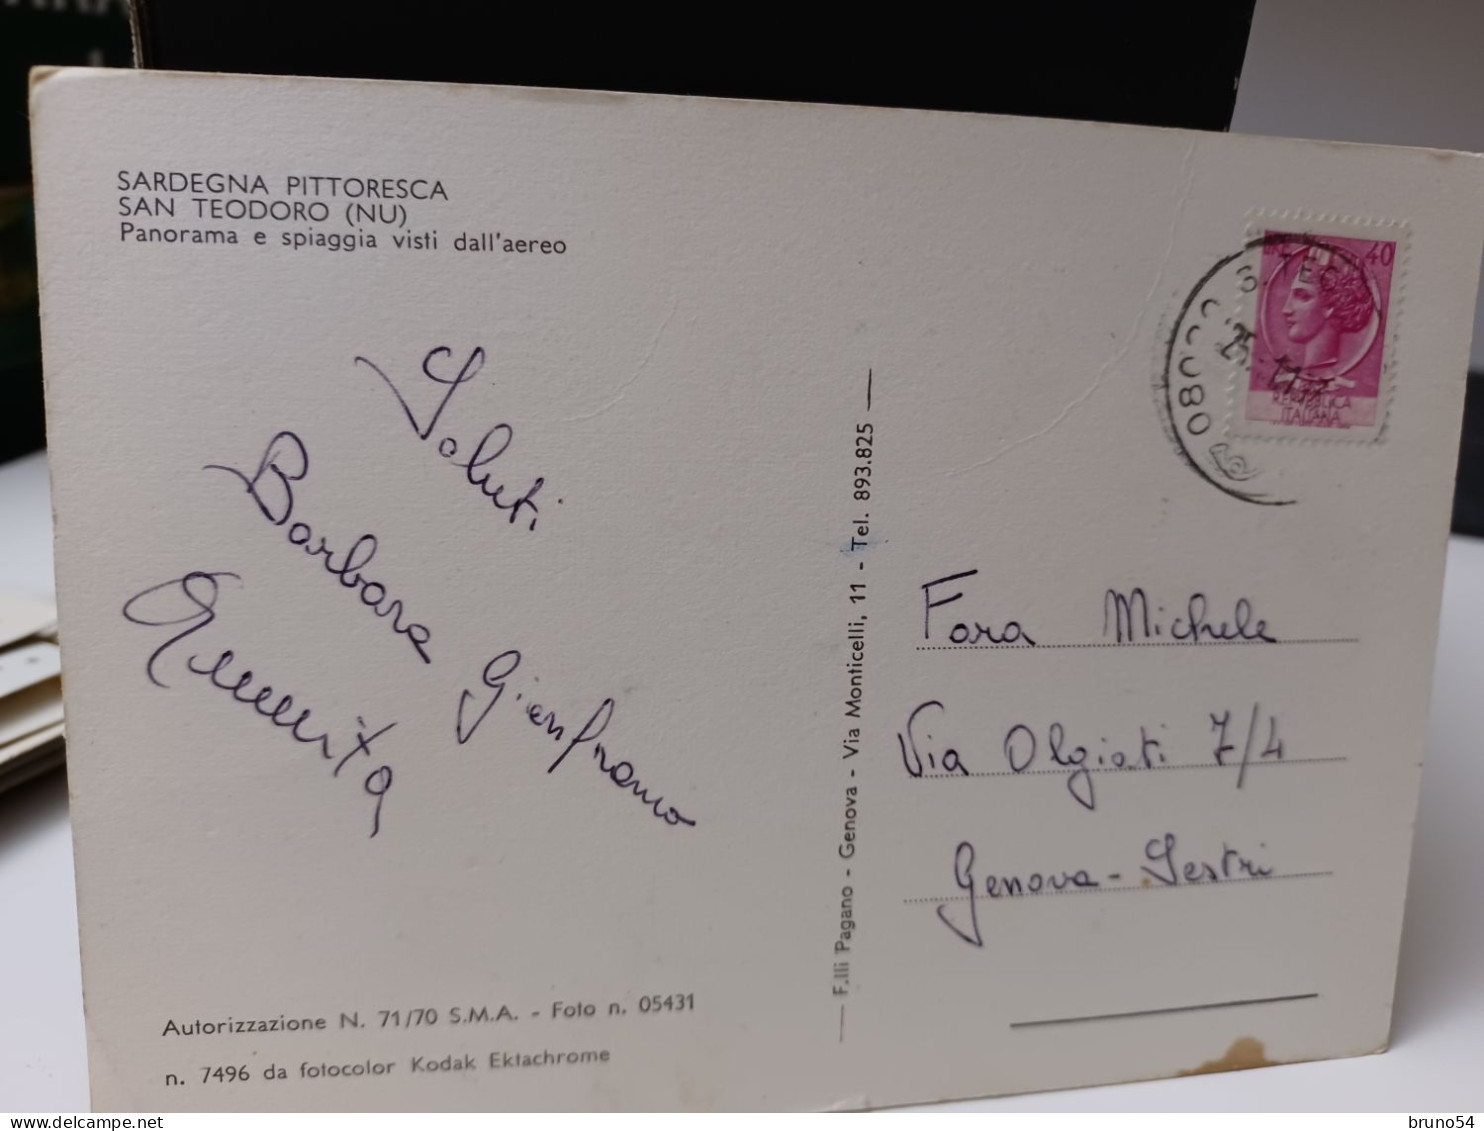 SARDEGNA PITTORESCA
SAN TEODORO (NU)
Panorama e spiaggia visti dall'aereo
LIRE 40
REPUBBLICA
ITALIANA
S. TEO
25.
080
Saluti
Barbara Gianfranco
F.lli Pagano - Genova - Via Monticelli, 11 - Tel. 893.825
Fara Michele
Via Olgiati 7/4
Genova - Sestri
Autorizzazione N. 71/70 S.M.A. - Foto n. 05431
n. 7496 da fotocolor Kodak Ektachrome
bruno54